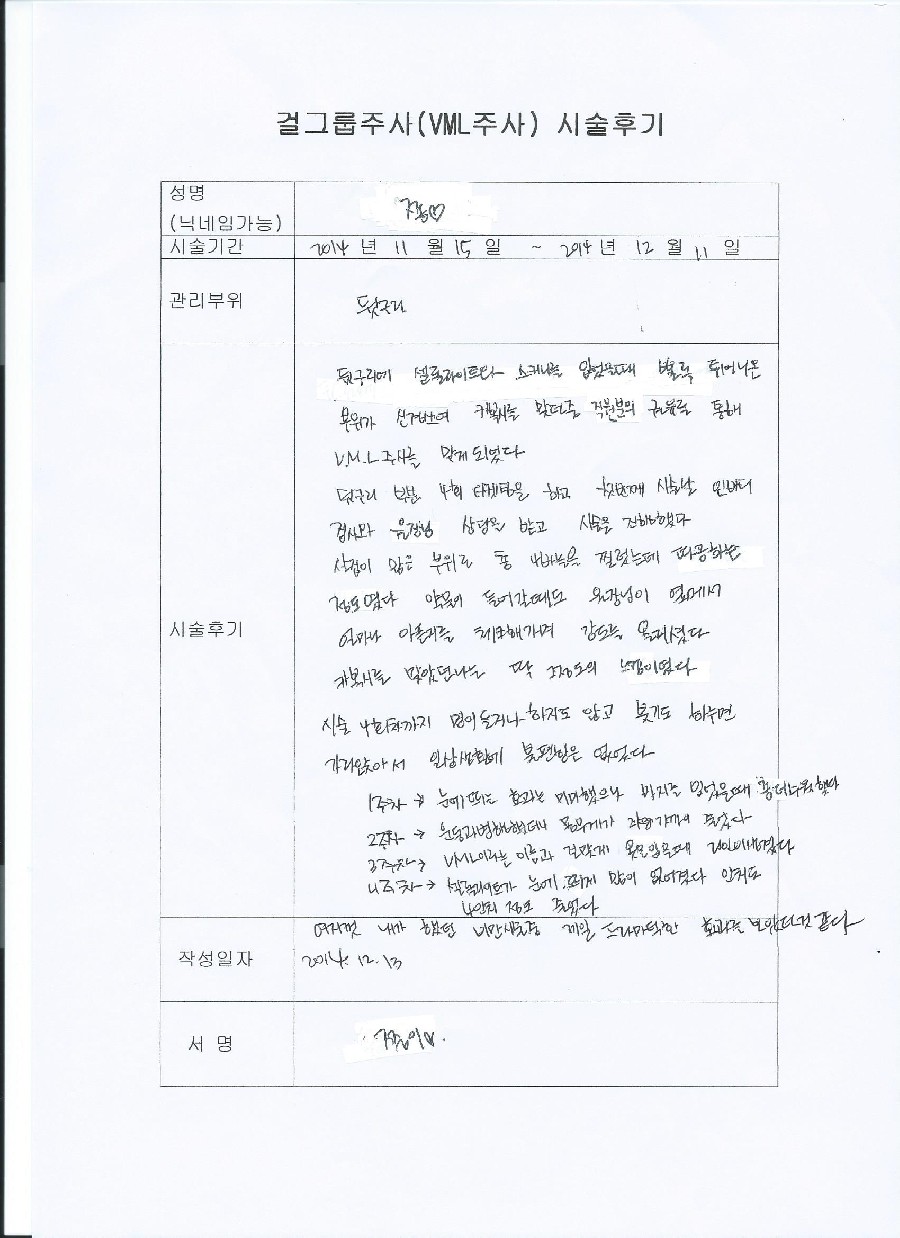 걸그룹주사(VML주사) 시술후기
성명
(닉네임가능)
시술기간 2014 년 11 월 15 일 ~ 2014 년 12 월 11 일
관리부위 뒷구리
뒷구리에 셀룰라이트와 스키니를 입었을때 볼록 튀어나온
부위가 신경쓰여 카복시를 맞던중 직원분의 권유를 통해
V.M.L 주사를 맞게 되었다
뒷구리 부분 4회 티케팅을 하고 첫번째 시술날 인바디
검사와 원장님 상담을 받고 시술을 진행했다
살집이 많은 부위로 총 4바늘을 찔렀는데 따끔하는
정도였다 약물이 들어갈때도 원장님이 옆에서
얼마나 아픈지를 체크해가며 강도를 올리셨다
카복시를 맞았던나는 딱 그정도의 느낌이었다
시술후기
시술 4회차까지 멍이들거나 하지도 않고 붓기도 하루면
가라앉아서 일상생활에 불편함은 없었다
1주차 → 눈에띄는 효과는 미미했으나 바지를 입었을때
2주차 → 운동과병행했더니 몸무게가 줄었다
3주차 → VML이라는 이름과 걸맞게 옷을입을때 라인이생겼다
4주차 → 셀룰라이트가 눈에띄게 많이 없어졌다 인치도
4인치 정도 줄었다
여지껏 내가 했던 비만시술중 제일 드라마틱한 효과를 보았던것 같다
작성일자 2014. 12. 13
서 명